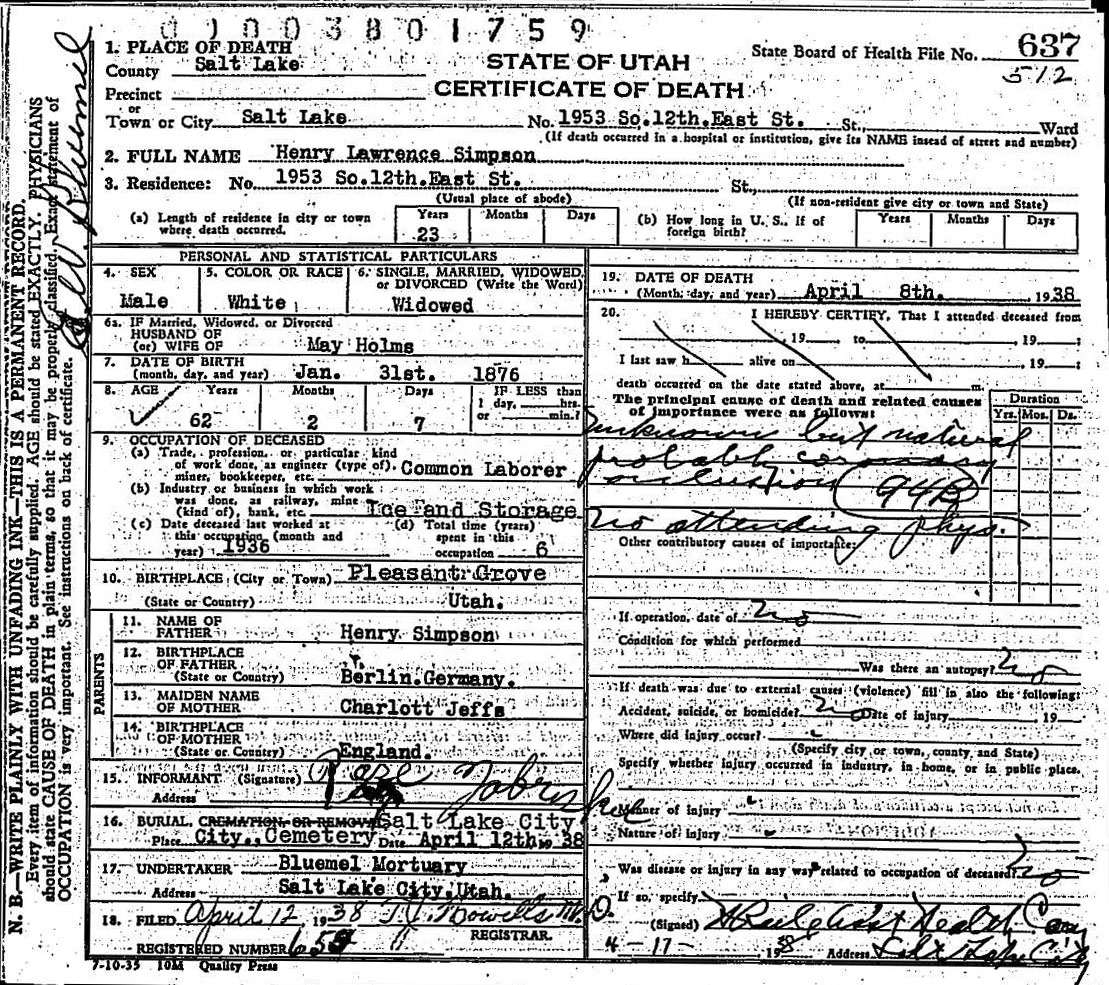 0 1 0 0 3 8 0 1 7 5 9
State Board of Health File No. 637
512
STATE OF UTAH
CERTIFICATE OF DEATH
1. PLACE OF DEATH
County Salt Lake
Precinct
or
Town or City Salt Lake No. 1953 So.12th.East St. St., Ward
(If death occurred in a hospital or institution, give its NAME insead of street and number)
2. FULL NAME Henry Lawrence Simpson
3. Residence: No. 1953 So.12th.East St. St.,
(Usual place of abode) (If non-resident give city or town and State)
(a) Length of residence in city or town where death occurred. Years 23 Months Days
(b) How long in U. S., If of foreign birth? Years Months Days
PERSONAL AND STATISTICAL PARTICULARS
4. SEX Male
5. COLOR OR RACE White
6. SINGLE, MARRIED, WIDOWED, or DIVORCED (Write the Word) Widowed
6a. IF Married, Widowed, or Divorced
HUSBAND OF
(or) WIFE OF May Holms
7. DATE OF BIRTH
(month, day, and year) Jan. 31st. 1876
8. AGE Years 62 Months 2 Days 7
IF LESS than
1 day, hrs.
or min.?
9. OCCUPATION OF DECEASED
(a) Trade, profession, or particular kind
of work done, as engineer (type of),
miner, bookkeeper, etc. Common Laborer
(b) Industry or business in which work
was done, as railway, mine
(kind of), bank, etc. Ice and Storage
(c) Date deceased last worked at
this occupation (month and
year) 1936
(d) Total time (years)
spent in this
occupation 6
10. BIRTHPLACE (City or Town) Pleasant Grove
(State or Country) Utah.
PARENTS
11. NAME OF
FATHER Henry Simpson
12. BIRTHPLACE
OF FATHER
(State or Country) Berlin.Germany.
13. MAIDEN NAME
OF MOTHER Charlott Jeffs
14. BIRTHPLACE
OF MOTHER
(State or Country) England.
15. INFORMANT (Signature)
Address
16. BURIAL, CREMATION OR REMOVAL Salt Lake City
Place City., Cemetery Date April 12th 19 38
17. UNDERTAKER Bluemel Mortuary
Address Salt Lake City,Utah.
18. FILED April 12 1938
REGISTRAR.
REGISTERED NUMBER
7-10-35 10M Quality Press
19. DATE OF DEATH
(Month, day, and year) April 8th. 1938
20. I HEREBY CERTIFY, That I attended deceased from
, 19 to , 19 :
I last saw h alive on , 19 :
death occurred on the date stated above, at m.
The principal cause of death and related causes
of importance were as follows:
Duration
Yrs. Mos. Ds.
unknown but natural
probably coronary
occlusion 94B
No attending phys.
Other contributory causes of importance:
If operation, date of no
Condition for which performed
Was there an autopsy? no
If death was due to external causes (violence) fill in also the following:
Accident, suicide, or homicide? no Date of injury 19
Where did injury occur?
(Specify city or town, county, and State)
Specify whether injury occurred in industry, in home, or in public place.
Manner of injury
Nature of injury
Was disease or injury in any way related to occupation of deceased? no
If so, specify
(Signed) Health Com
4-17- 1938 Address Salt Lake City
N. B.—WRITE PLAINLY WITH UNFADING INK—THIS IS A PERMANENT RECORD.
Every item of information should be carefully supplied. AGE should be stated EXACTLY. PHYSICIANS
should state CAUSE OF DEATH in plain terms, so that it may be properly classified. Exact statement of
OCCUPATION is very important. See instructions on back of certificate.